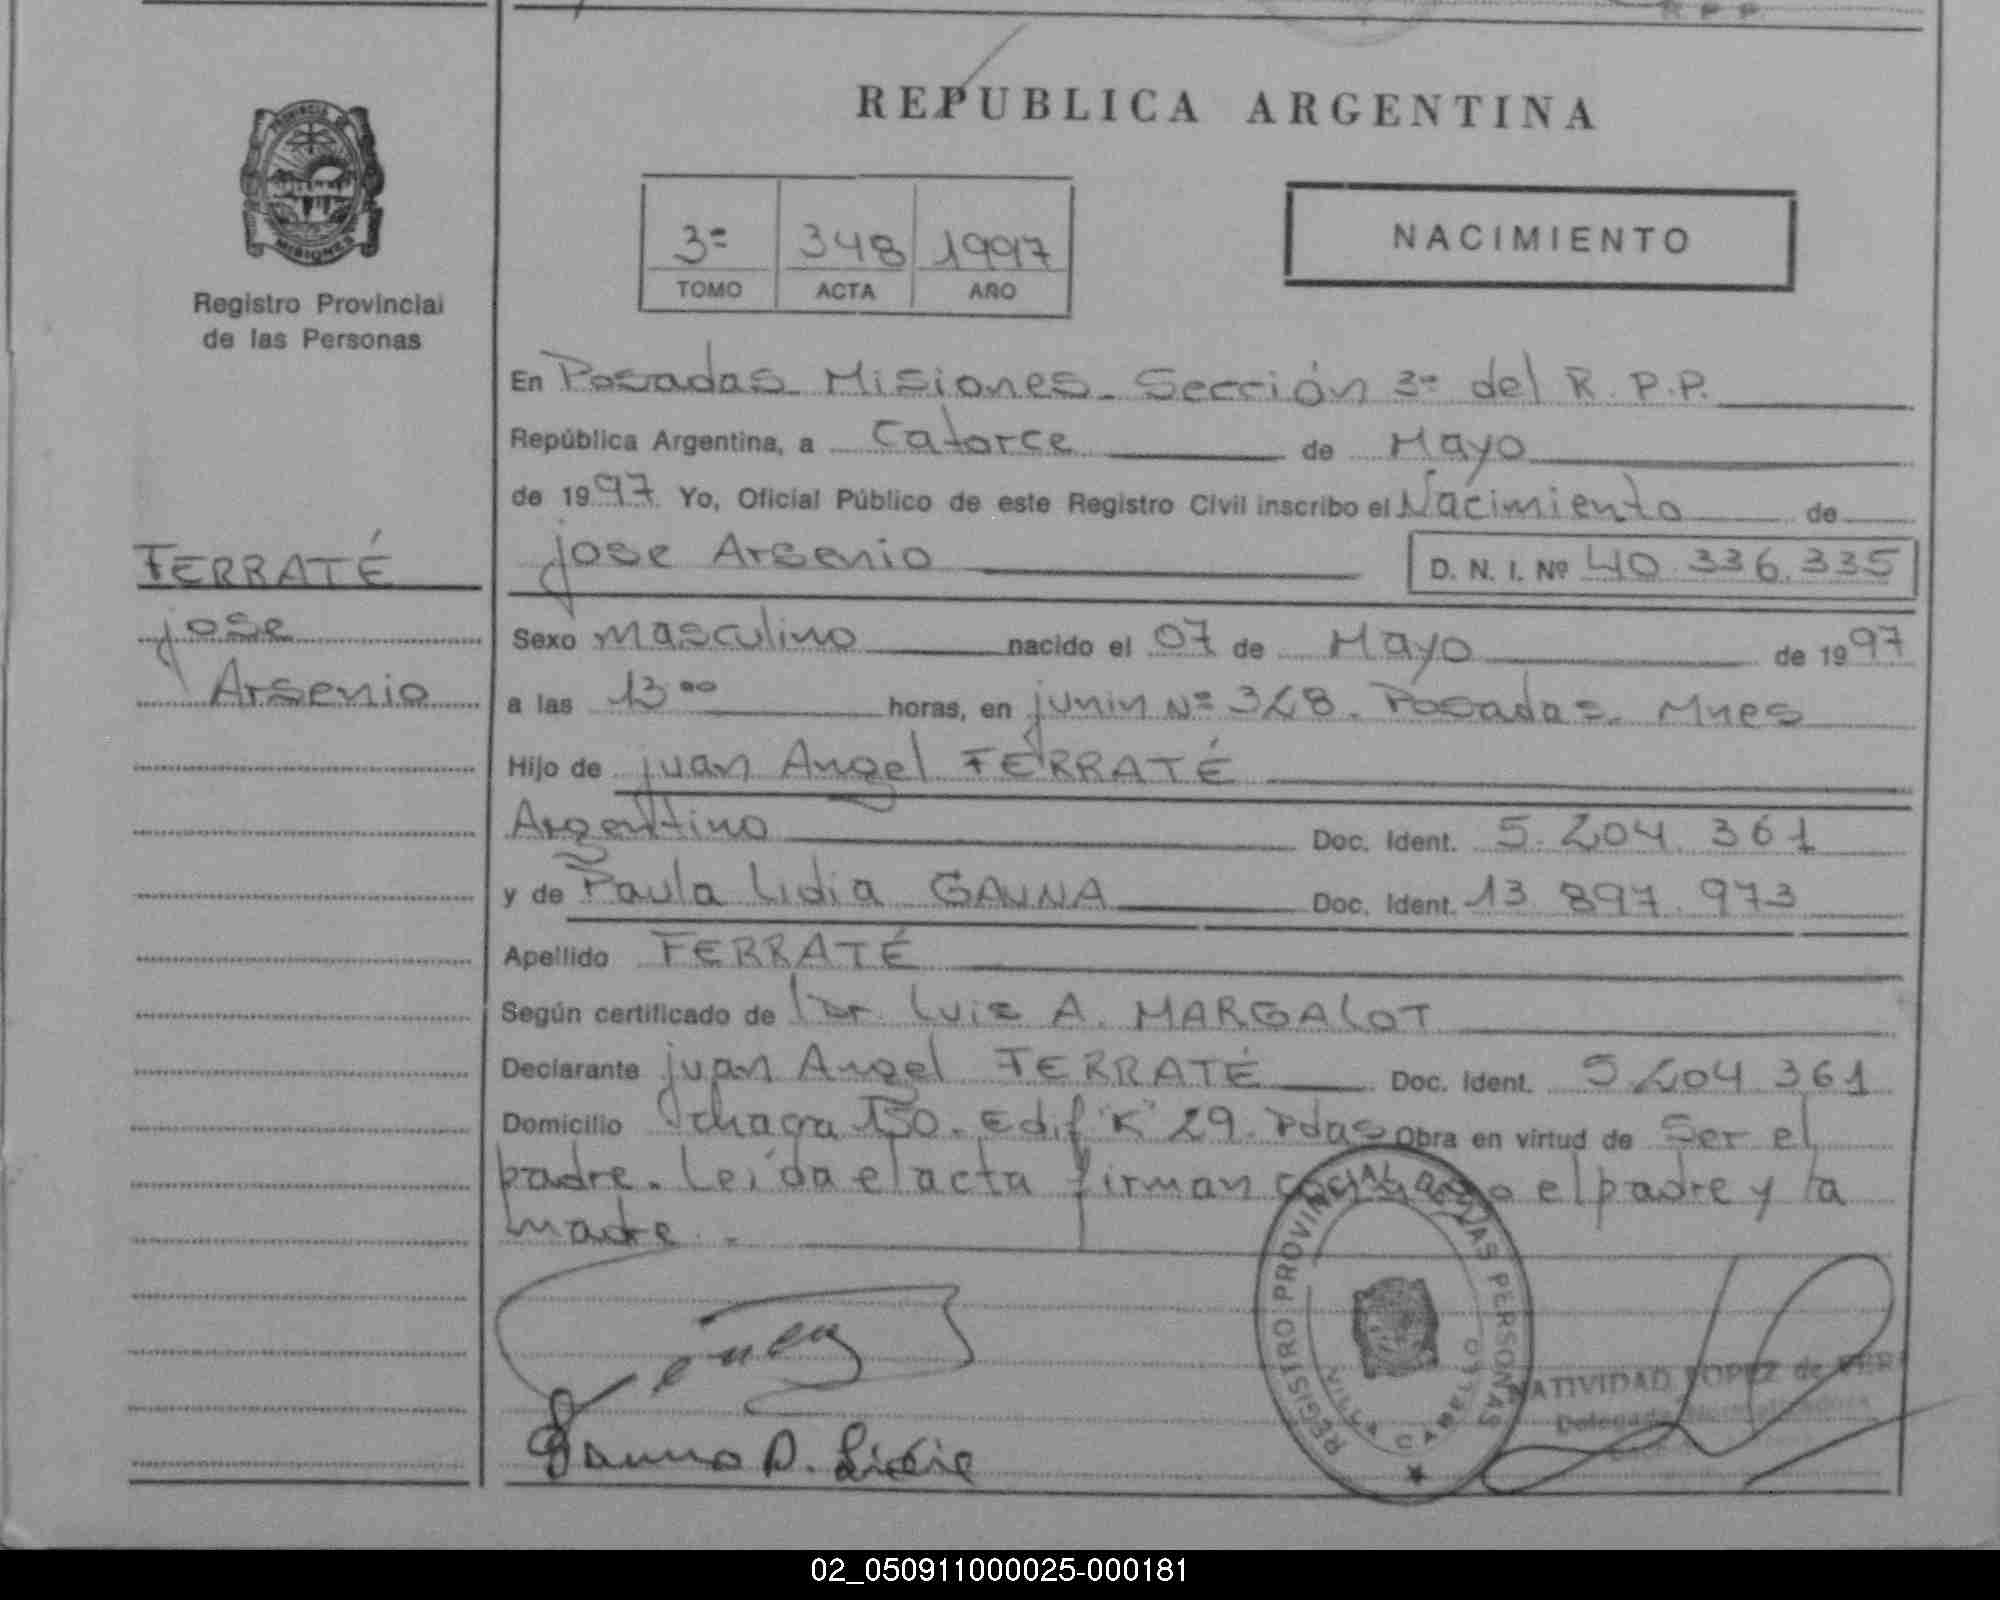 REPUBLICA ARGENTINA
PROVINCIA DE
MISIONES
Registro Provincial
de las Personas
3º 348 1997
TOMO ACTA AÑO
NACIMIENTO
FERRATÉ
jose
Arsenio
En Posadas Misiones. Sección 3º del R.P.P.
República Argentina, a Catorce de Mayo
de 1997 Yo, Oficial Público de este Registro Civil inscribo el Nacimiento de
jose Arsenio D. N. I. Nº 40.336.335
Sexo masculino nacido el 07 de Mayo de 1997
a las 13 00 horas, en junin Nº 328. Posadas. Mnes
Hijo de juan Angel FERRATÉ
Argentino Doc. Ident. 5.204.361
y de Paula Lidia GAUNA Doc. Ident. 13.897.973
Apellido FERRATÉ
Según certificado de Dr. Luis A. MARGALOT
Declarante juan Angel FERRATÉ Doc. Ident. 5.204.361
Domicilio Ichaga 150. Edif "K" 29. Pdas Obra en virtud de Ser el
padre. Leída el acta firman el padre y la
madre.
REGISTRO PROVINCIAL DE LAS PERSONAS
VILLA CABELLO
NATIVIDAD LOPEZ de
Delegada
Gauna P. Lidia
02_050911000025-000181